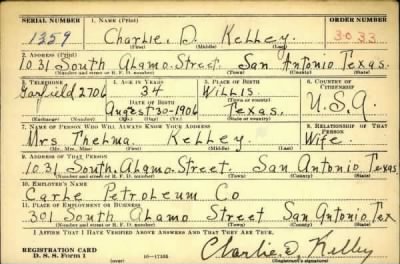 SERIAL NUMBER 1. NAME (Print) ORDER NUMBER
1359 Charlie. D. Kelley. 3033
(First) (Middle) (Last)
2. ADDRESS (Print)
1031 South Alamo. Street. San Antonio Texas.
(Number and street or R. F. D. number) (Town) (County) (State)
3. TELEPHONE 4. AGE IN YEARS 5. PLACE OF BIRTH 6. COUNTRY OF CITIZENSHIP
Garfield 2706 34 Willis.
DATE OF BIRTH (Town or county)
Augest-30-1906 Texas. U.S.A.
(Exchange) (Number) (Mo.) (Day) (Yr.) (State or country)
7. NAME OF PERSON WHO WILL ALWAYS KNOW YOUR ADDRESS 8. RELATIONSHIP OF THAT PERSON
Mrs Thelma. Kelley. Wife.
(Mr., Mrs., Miss) (First) (Middle) (Last)
9. ADDRESS OF THAT PERSON
1031 South. Alamo. Street. San Antonio Texas
(Number and street or R. F. D. number) (Town) (County) (State)
10. EMPLOYER'S NAME
Carle Petroleum Co
11. PLACE OF EMPLOYMENT OR BUSINESS
301 South Alamo Street San Antonio, Tex
(Number and street or R. F. D. number) (Town) (County) (State)
I AFFIRM THAT I HAVE VERIFIED ABOVE ANSWERS AND THAT THEY ARE TRUE.
REGISTRATION CARD
D. S. S. Form 1 (over) 16—17105 Charlie D, Kelley
(Registrant's signature)